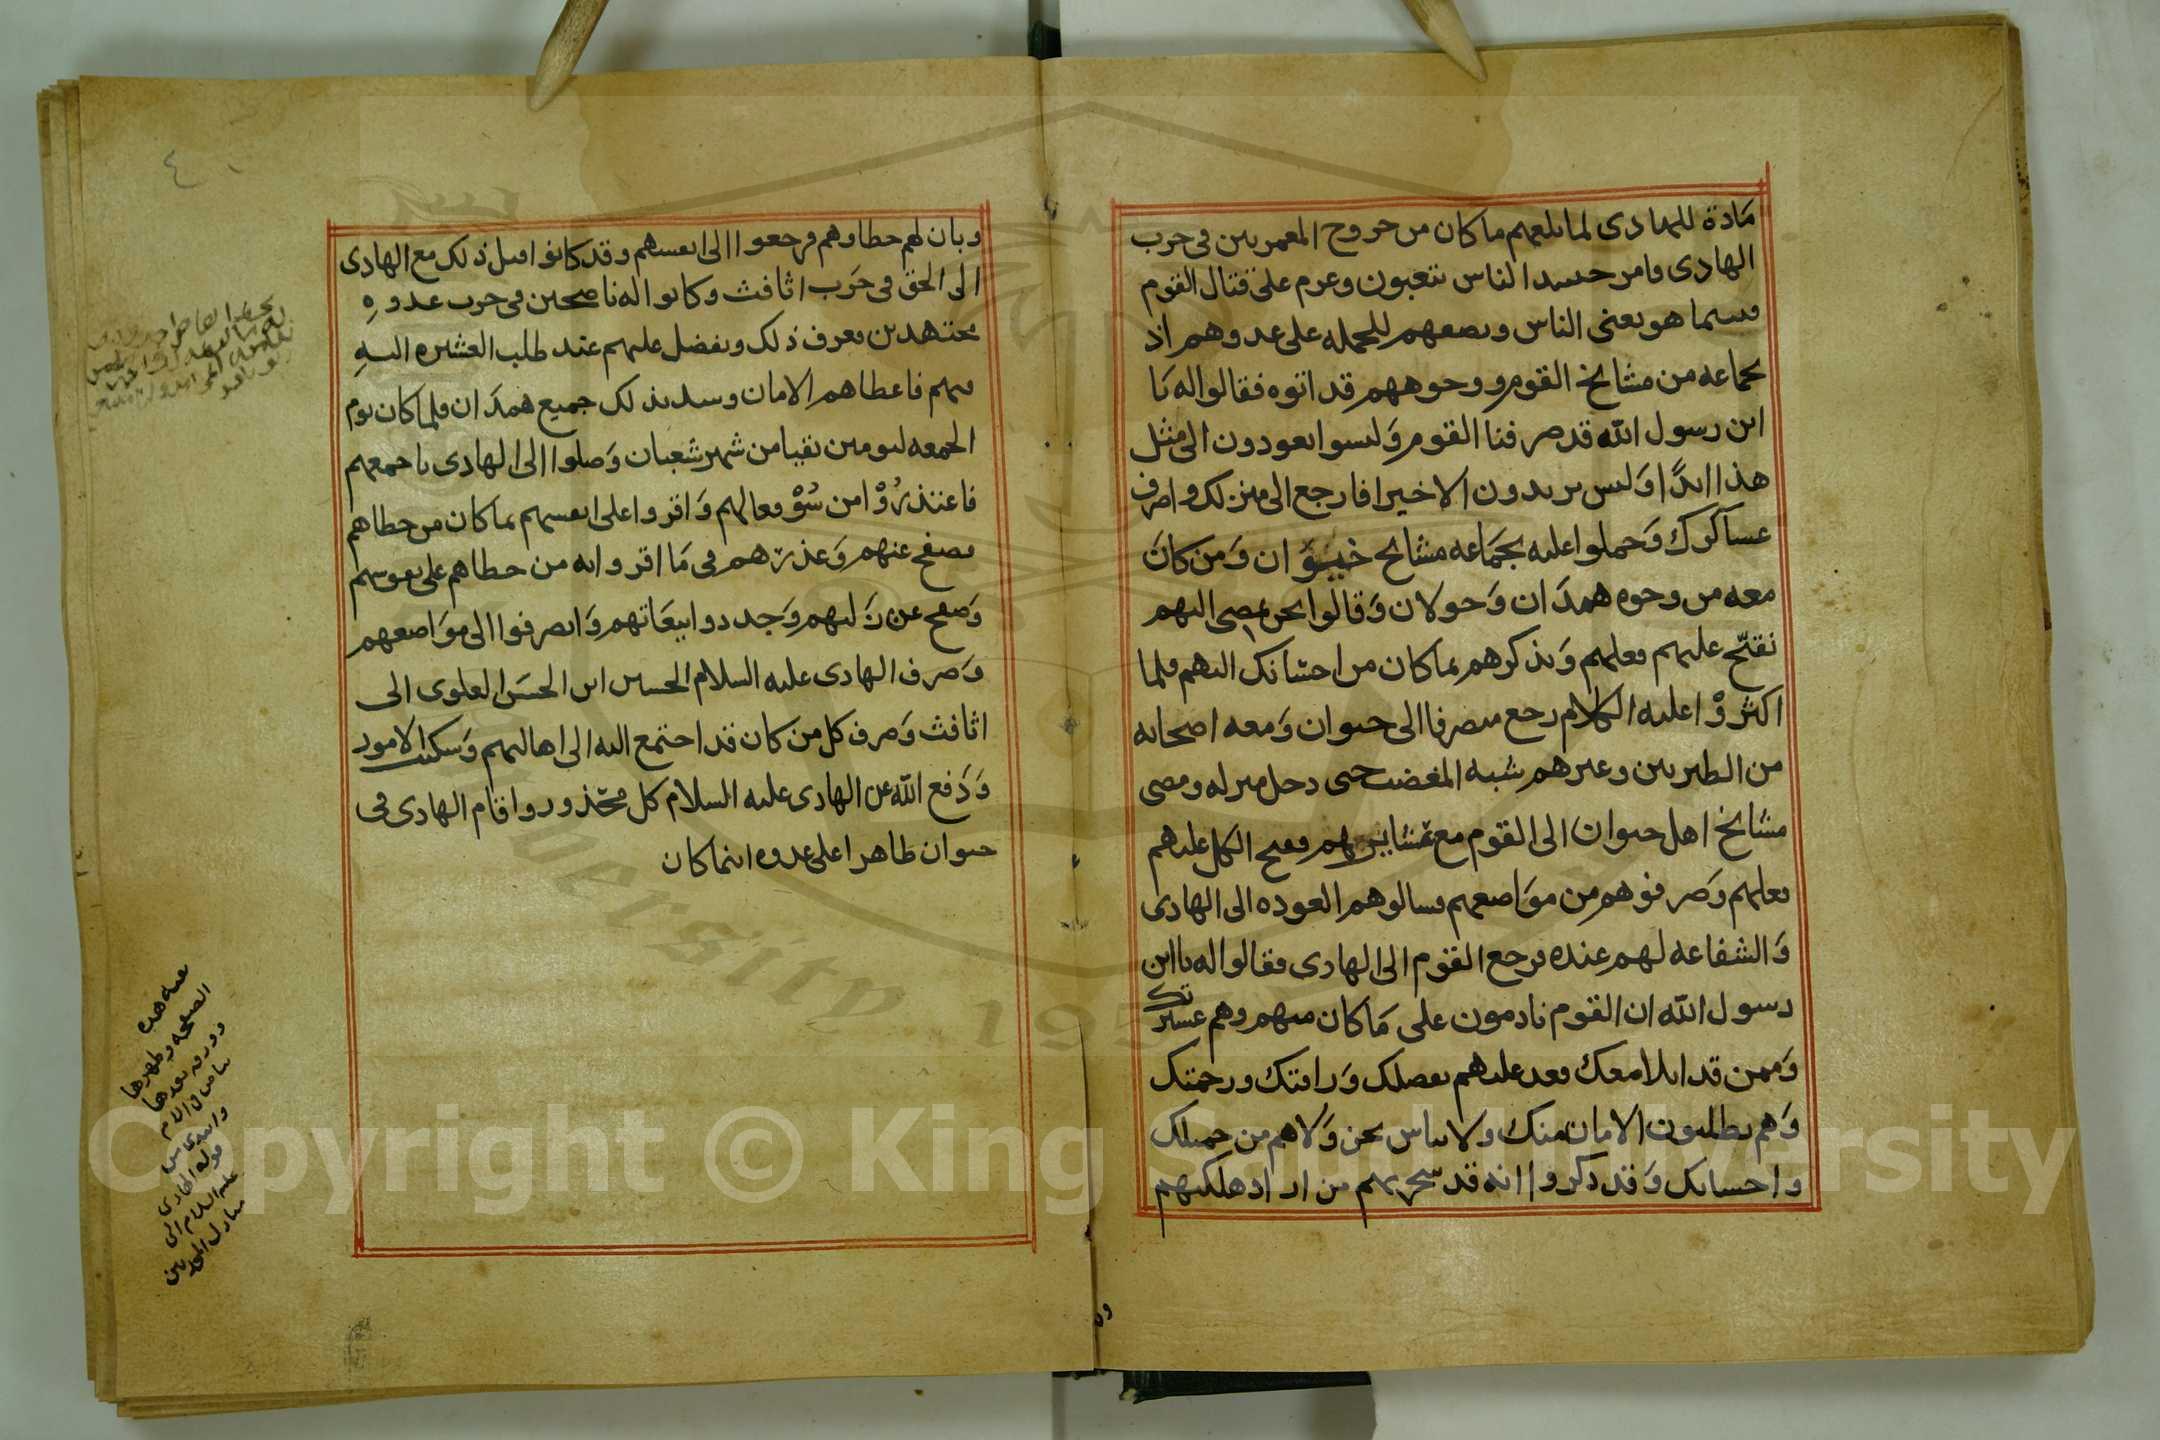 مادة للهادى لما بلغهم ما كان من خروج المعمريين فى حرب
الهادى فامر حسد الناس يتعبون وعزم على قتال القوم
فبينما هو يعبى الناس ويصفهم للحمله على عدوهم اذ
بجماعه من مشايخ القوم ووجوههم قد اتوه فقالوا له يا
ابن رسول الله قد صرفنا القوم وليسوا يعودون الى مثل
هذا ابدًا وليس يريدون الا خيرا فارجع الى منزلك واصرف
عساكرك وحملوا عليه بجماعه مشايخ خيوان ومن كان
معه من وجوه همدان وخولان وقالوا نحن نمضى اليهم
نقبّح عليهم فعلهم ونذكرهم بما كان من احسانك اليهم فلما
اكثروْا عليه الكلام رجع منصرفا الى خيوان ومعه اصحابه
من الطبريين وغيرهم شبه المغضب حتى دخل منزله ومضى
مشايخ اهل خيوان الى القوم مع عشايرهم فقبح الكل عليهم
فعلهم وصرفوهم من مواضعهم فسالوهم العوده الى الهادى
والشفاعه لهم عنده فرجع القوم الى الهادى فقالوا له يا ابن
رسول الله ان القوم نادمون على ما كان منهم وهم عشيرتك
وممن قد ابلا معك فعد عليهم بفضلك ورافتك ورحمتك
وهم يطلبون الامان منك ولا نياس نحن ولاهم من جميلك
واحسانك وقد ذكروا انه قد سخر بهم من اراد هلكتهم
وبان لهم خطاوهم فرجعوا الى انفسهم وقد كانوا قبل ذلك مع الهادى
الى الحق فى حرب اثافث وكانوا له ناصحين فى حرب عدوهِ
مجتهدين فعرف ذلك وتفضل عليهم عند طلب العشيره اليهِ
فيهم فاعطاهم الامان وسد بذلك جميع همدان فلما كان يوم
الجمعه ليومين بقيا من شهر شعبان وصلوا الى الهادى باجمعهم
فاعتذرُوْا من سُوْ فعالهم واقروا على انفسهم بما كان من خطاهم
فصفح عنهم وعذرهم فى ما اقروا به من خطاهم على نفوسهم
وصفح عن زلتهم وجددوا بيعاتهم وانصرفوا الى مواضعهم
وصرف الهادى عليه السلام الحسين ابن الحسن العلوى الى
اثافث وصرف كل من كان قد اجتمع اليه الى اهاليهم وسكنت الامور
ودفع الله عن الهادى عليه السلام كل محذور واقام الهادى فى
خيوان ظاهرا على عدوه اينما كان
هذه
الصفحه وظهرها
وورقه بعدها
بياض
قوله الهادى
عليه السلام الى
Copyright © King Saud University
University 195